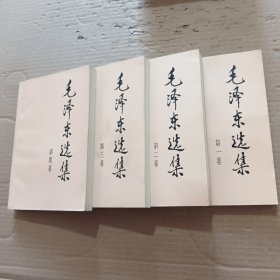 毛泽东选集
第四卷
毛泽东选集
第三卷
毛泽东选集
第二卷
毛泽东选集
第一卷